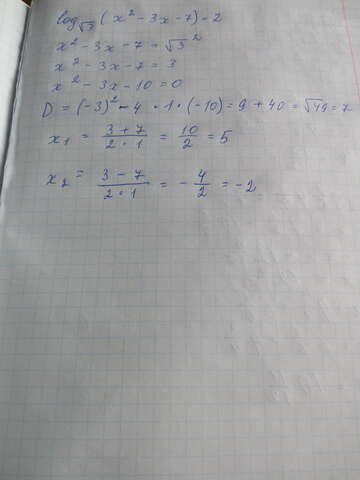 log√3 (x² - 3x - 7) = 2
x² - 3x - 7 = √3²
x² - 3x - 7 = 3
x² - 3x - 10 = 0
D = (-3)² - 4 · 1 · (-10) = 9 + 40 = √49 = 7
x₁ = (3 + 7)/(2 · 1) = 10/2 = 5
x₂ = (3 - 7)/(2 · 1) = - 4/2 = -2